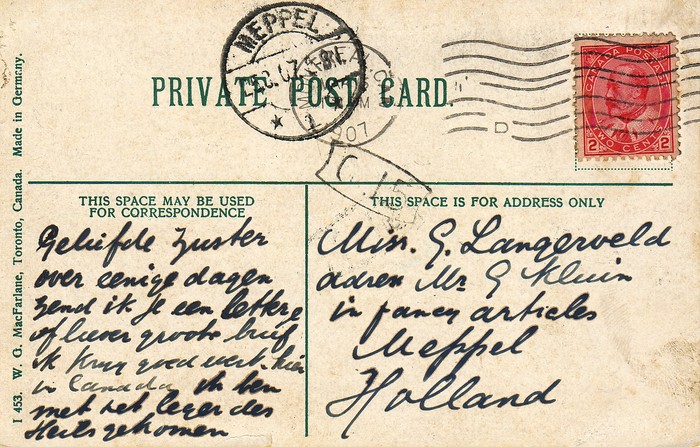 MEPPEL
8.07
1
907
PRIVATE POST CARD.
D
CANADA POSTAGE
2 TWO CENTS 2
THIS SPACE MAY BE USED
FOR CORRESPONDENCE
THIS SPACE IS FOR ADDRESS ONLY
Geliefde Zuster
over eenige dagen
zend ik je een letter
of liever groote brief
ik Kryg goed werk hier
in Canada ik ben
met het leger des
Heils gekomen
Miss. G. Langerveld
adres Mr G Kluin
in fancy articles
Meppel
Holland
I 453. W. G. MacFarlane, Toronto, Canada. Made in Germany.